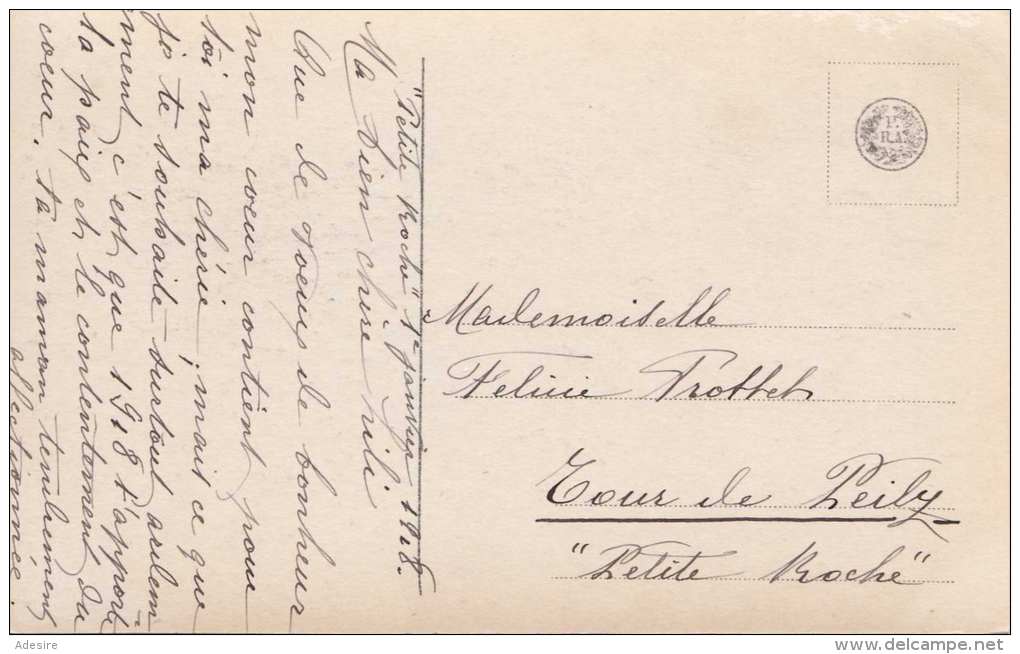 "Petite Roche" 1e janvier 1918.
Ma bien chère Lili
Que de voeux de bonheur
mon coeur contient pour
toi ma chérie, mais ce que
je te souhaite surtout ardem-
ment c'est que 1918 t'apporte
la paix et le contentement du
coeur. ta maman tendrement
affectionnée.
Mademoiselle
Felicie Trottet
Tour de Peilz
"Petite Roche"
Adesire
www.delcampe.net